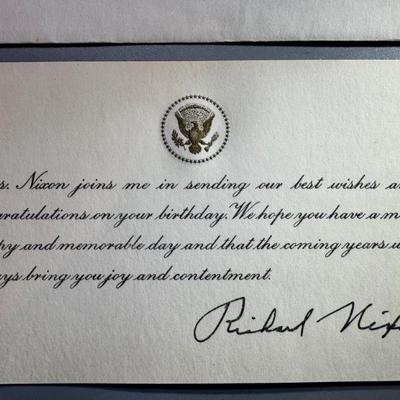 s. Nixon joins me in sending our best wishes an
gratulations on your birthday. We hope you have a m
py and memorable day and that the coming years w
ays bring you joy and contentment.
Richard Nix